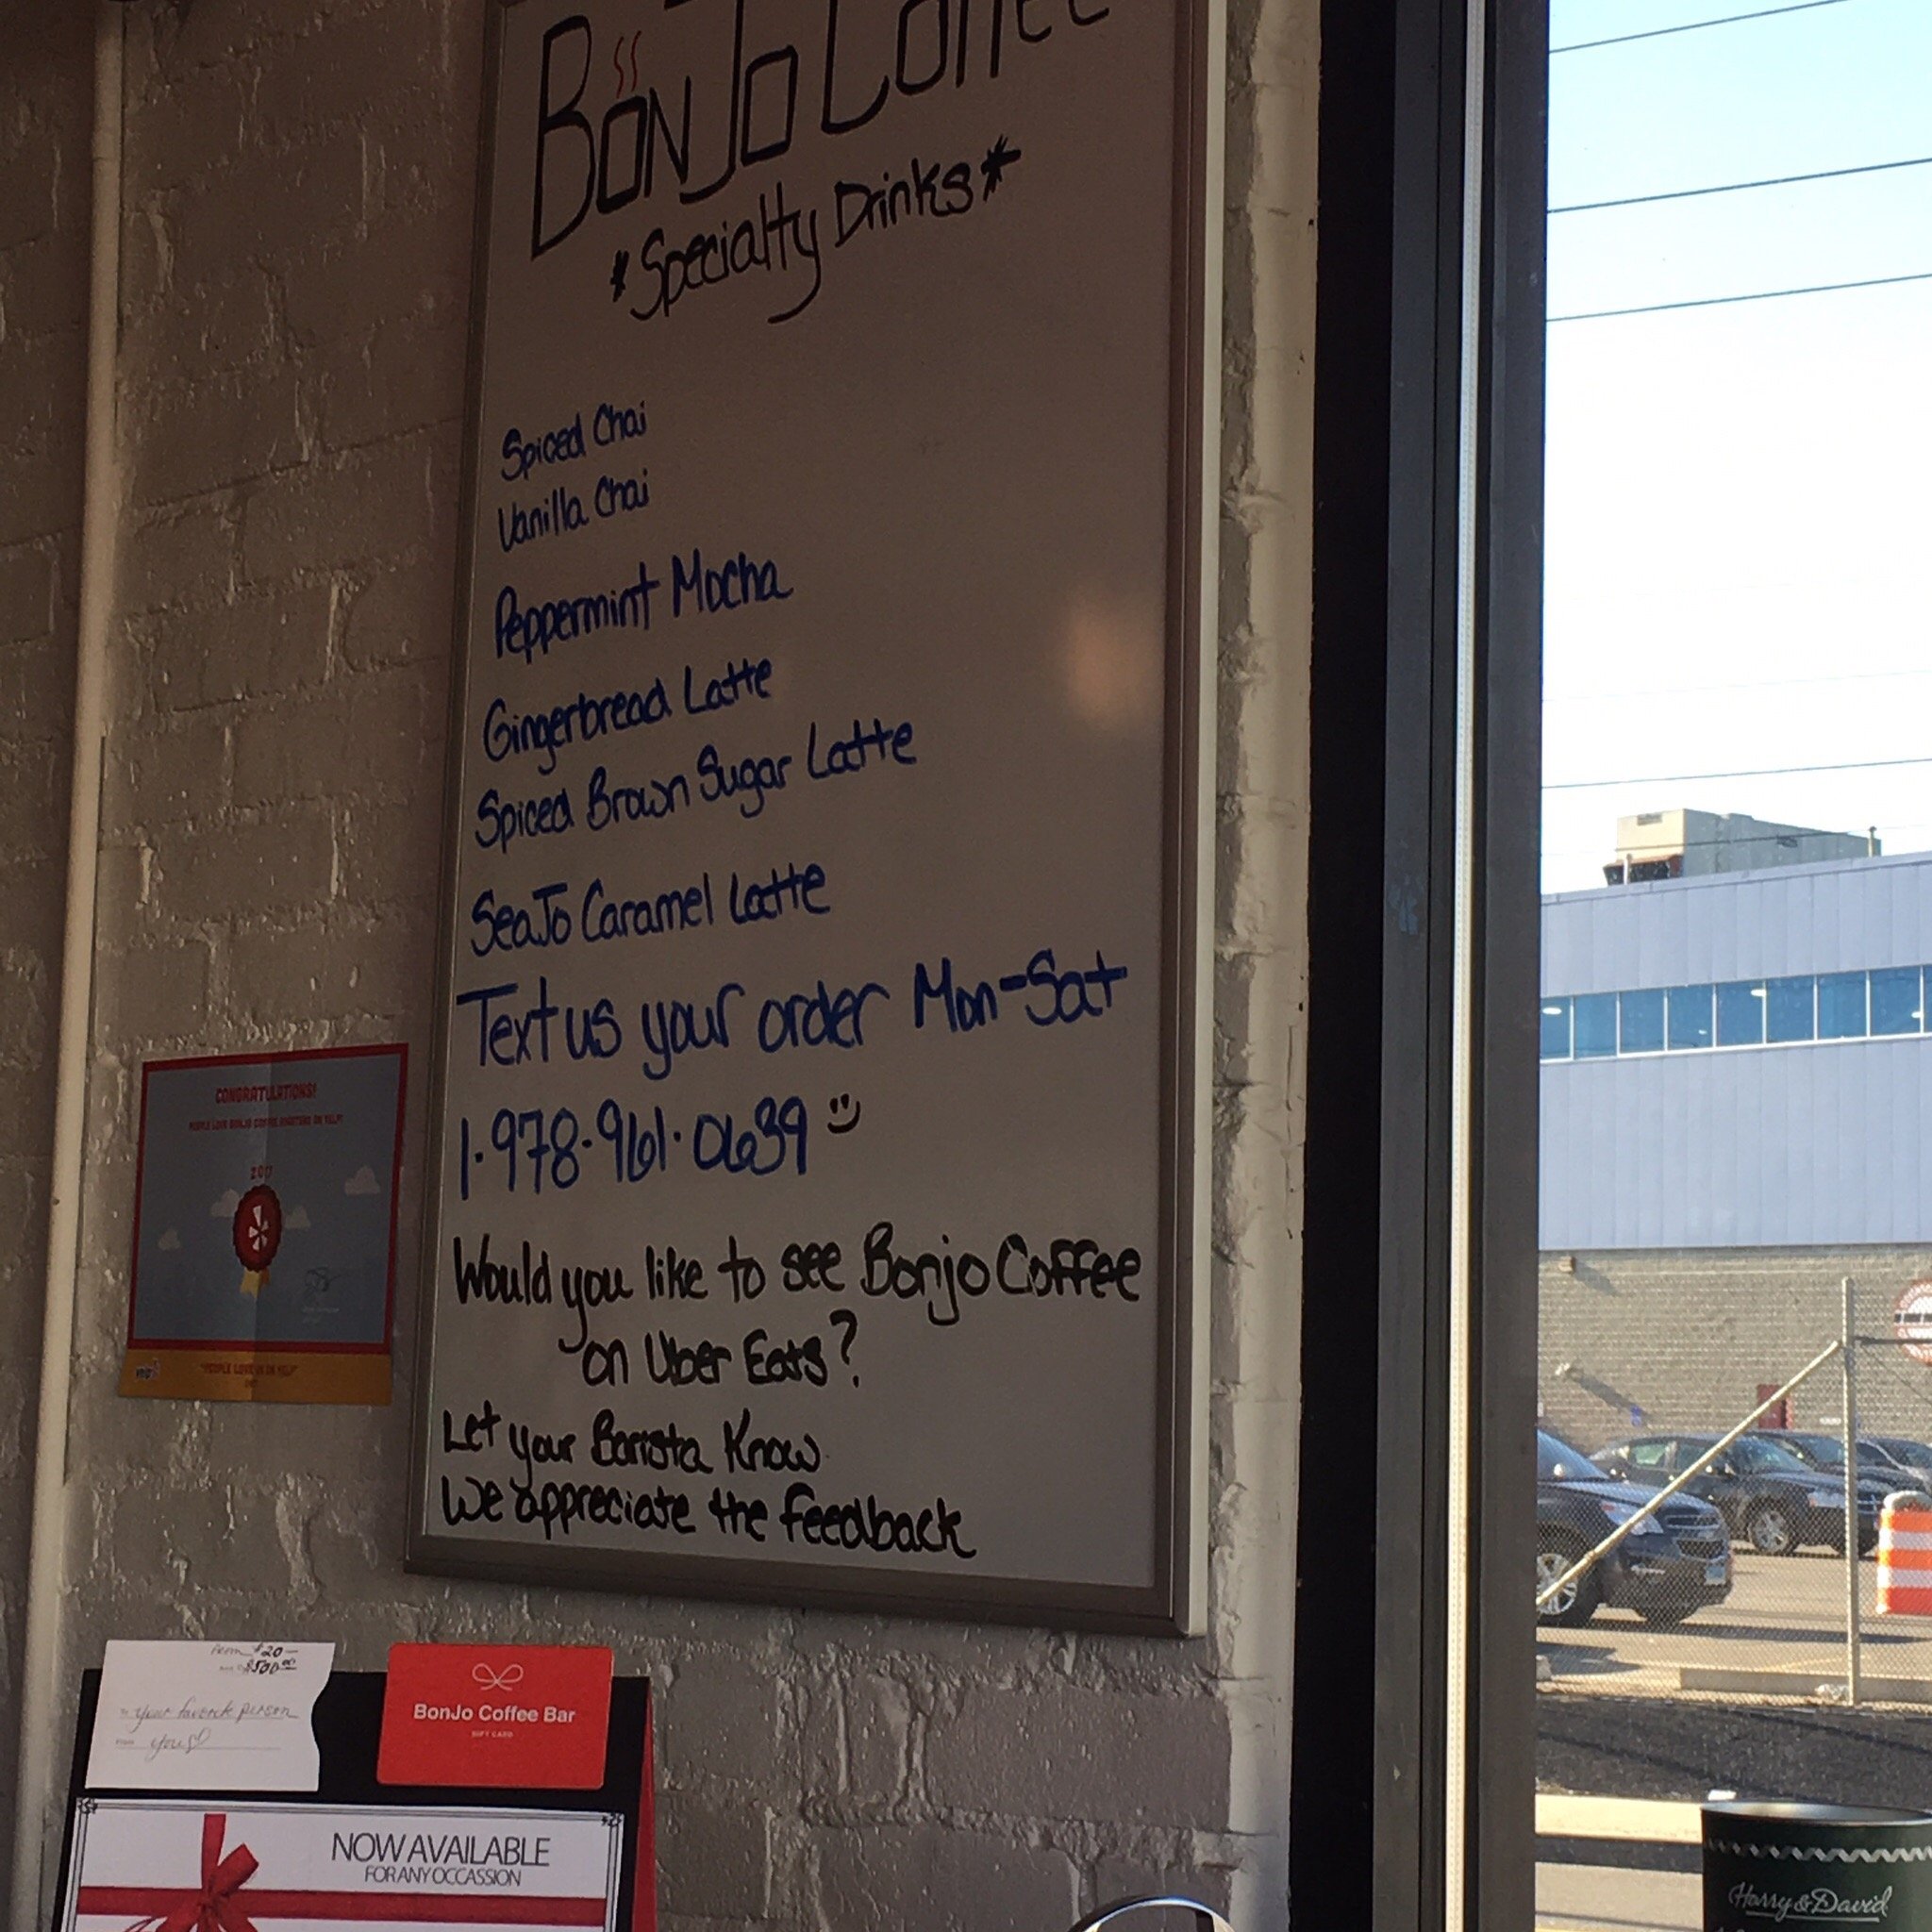 BonJo Coffee
*Specialty Drinks*
Spiced Chai
Vanilla Chai
Peppermint Mocha
Gingerbread Latte
Spiced Brown Sugar Latte
SeaJo Caramel Latte
Text us your order Mon-Sat
1·978·961·0639
Would you like to see Bonjo Coffee
on Uber Eats?
Let your Barista Know
We appreciate the feedback
CONGRATULATIONS!
PEOPLE LOVE BONJO COFFEE ROASTERS ON YELP!
2017
"PEOPLE LOVE US ON YELP"
$20
$500.00
your favorite person
you
BonJo Coffee Bar
GIFT CARD
NOW AVAILABLE
FOR ANY OCCASSION
Harry & David